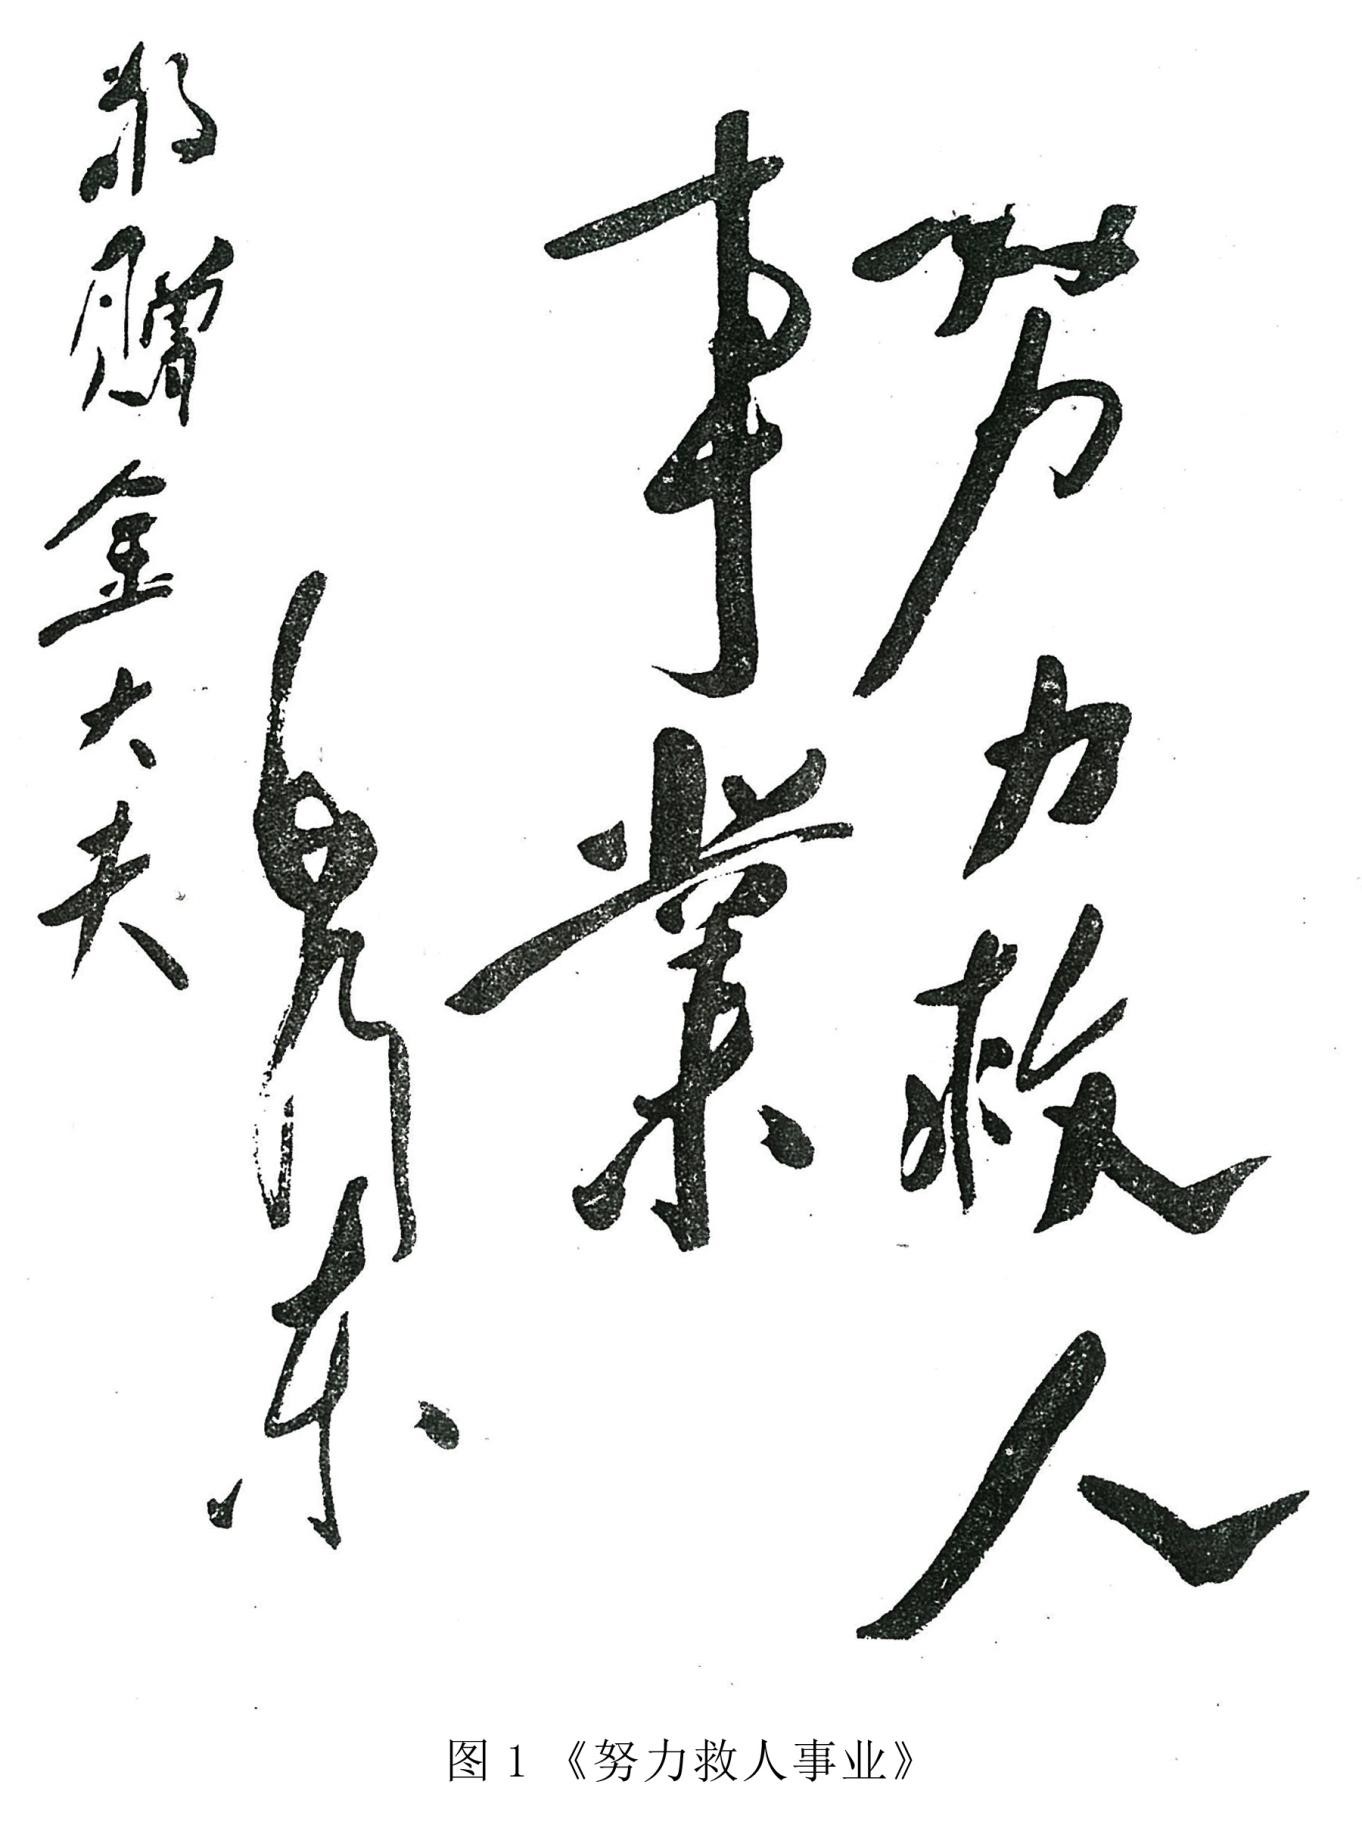 努力救人
事業
毛澤東
敬贈金大夫
图1《努力救人事业》